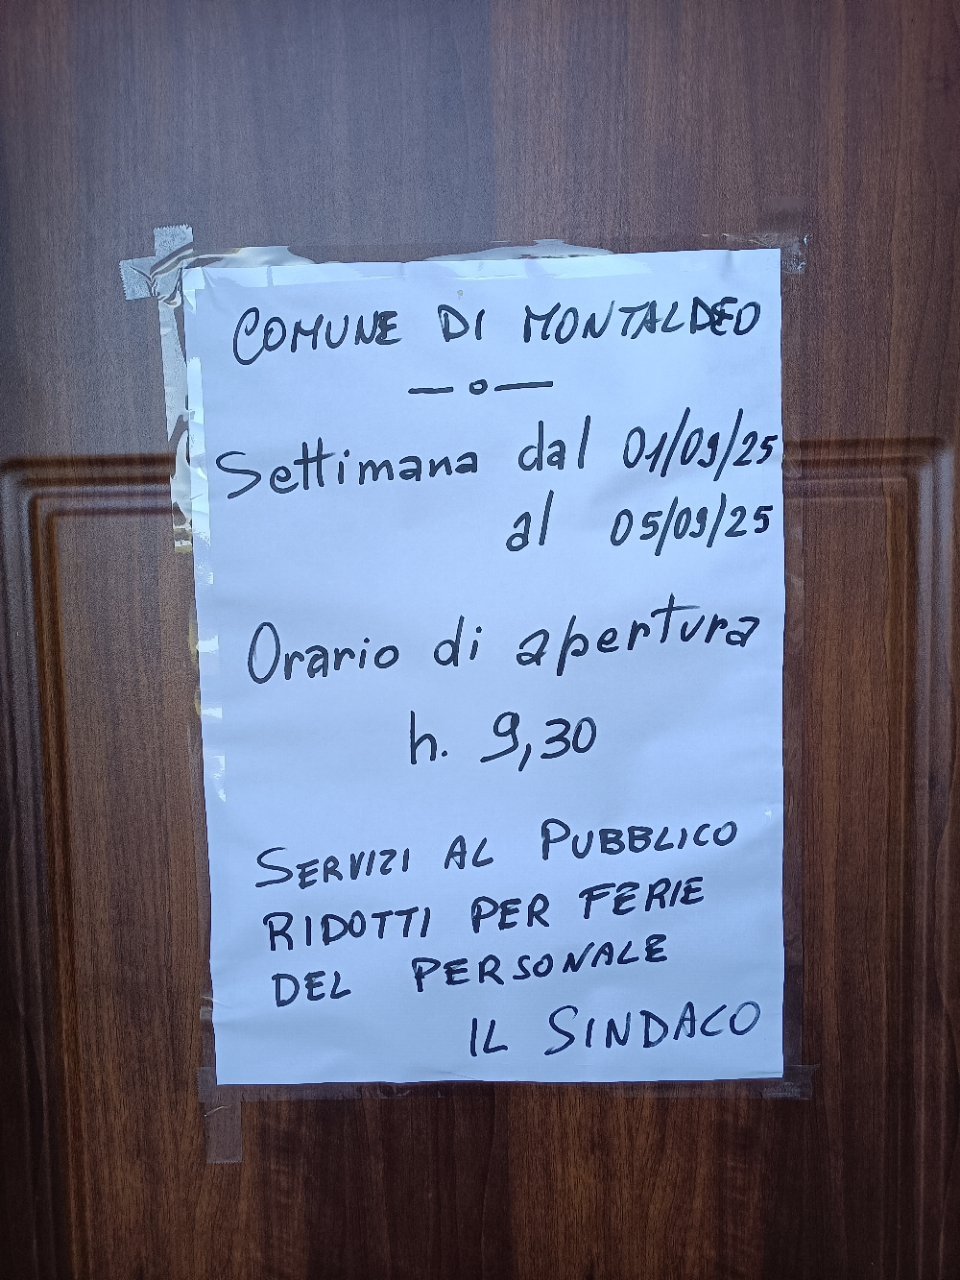 COMUNE DI MONTALDEO
—o—
Settimana dal 01/09/25
al 05/09/25
Orario di apertura
h. 9,30
SERVIZI AL PUBBLICO
RIDOTTI PER FERIE
DEL PERSONALE
IL SINDACO